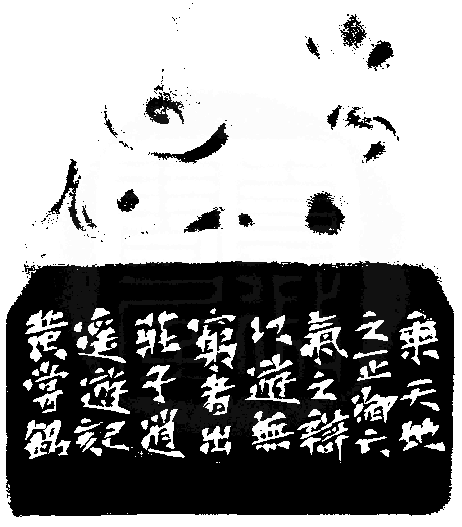 乘天地
之正御六
氣之辯
以遊無
窮者出
莊子逍
遙遊記
黃嘗銘